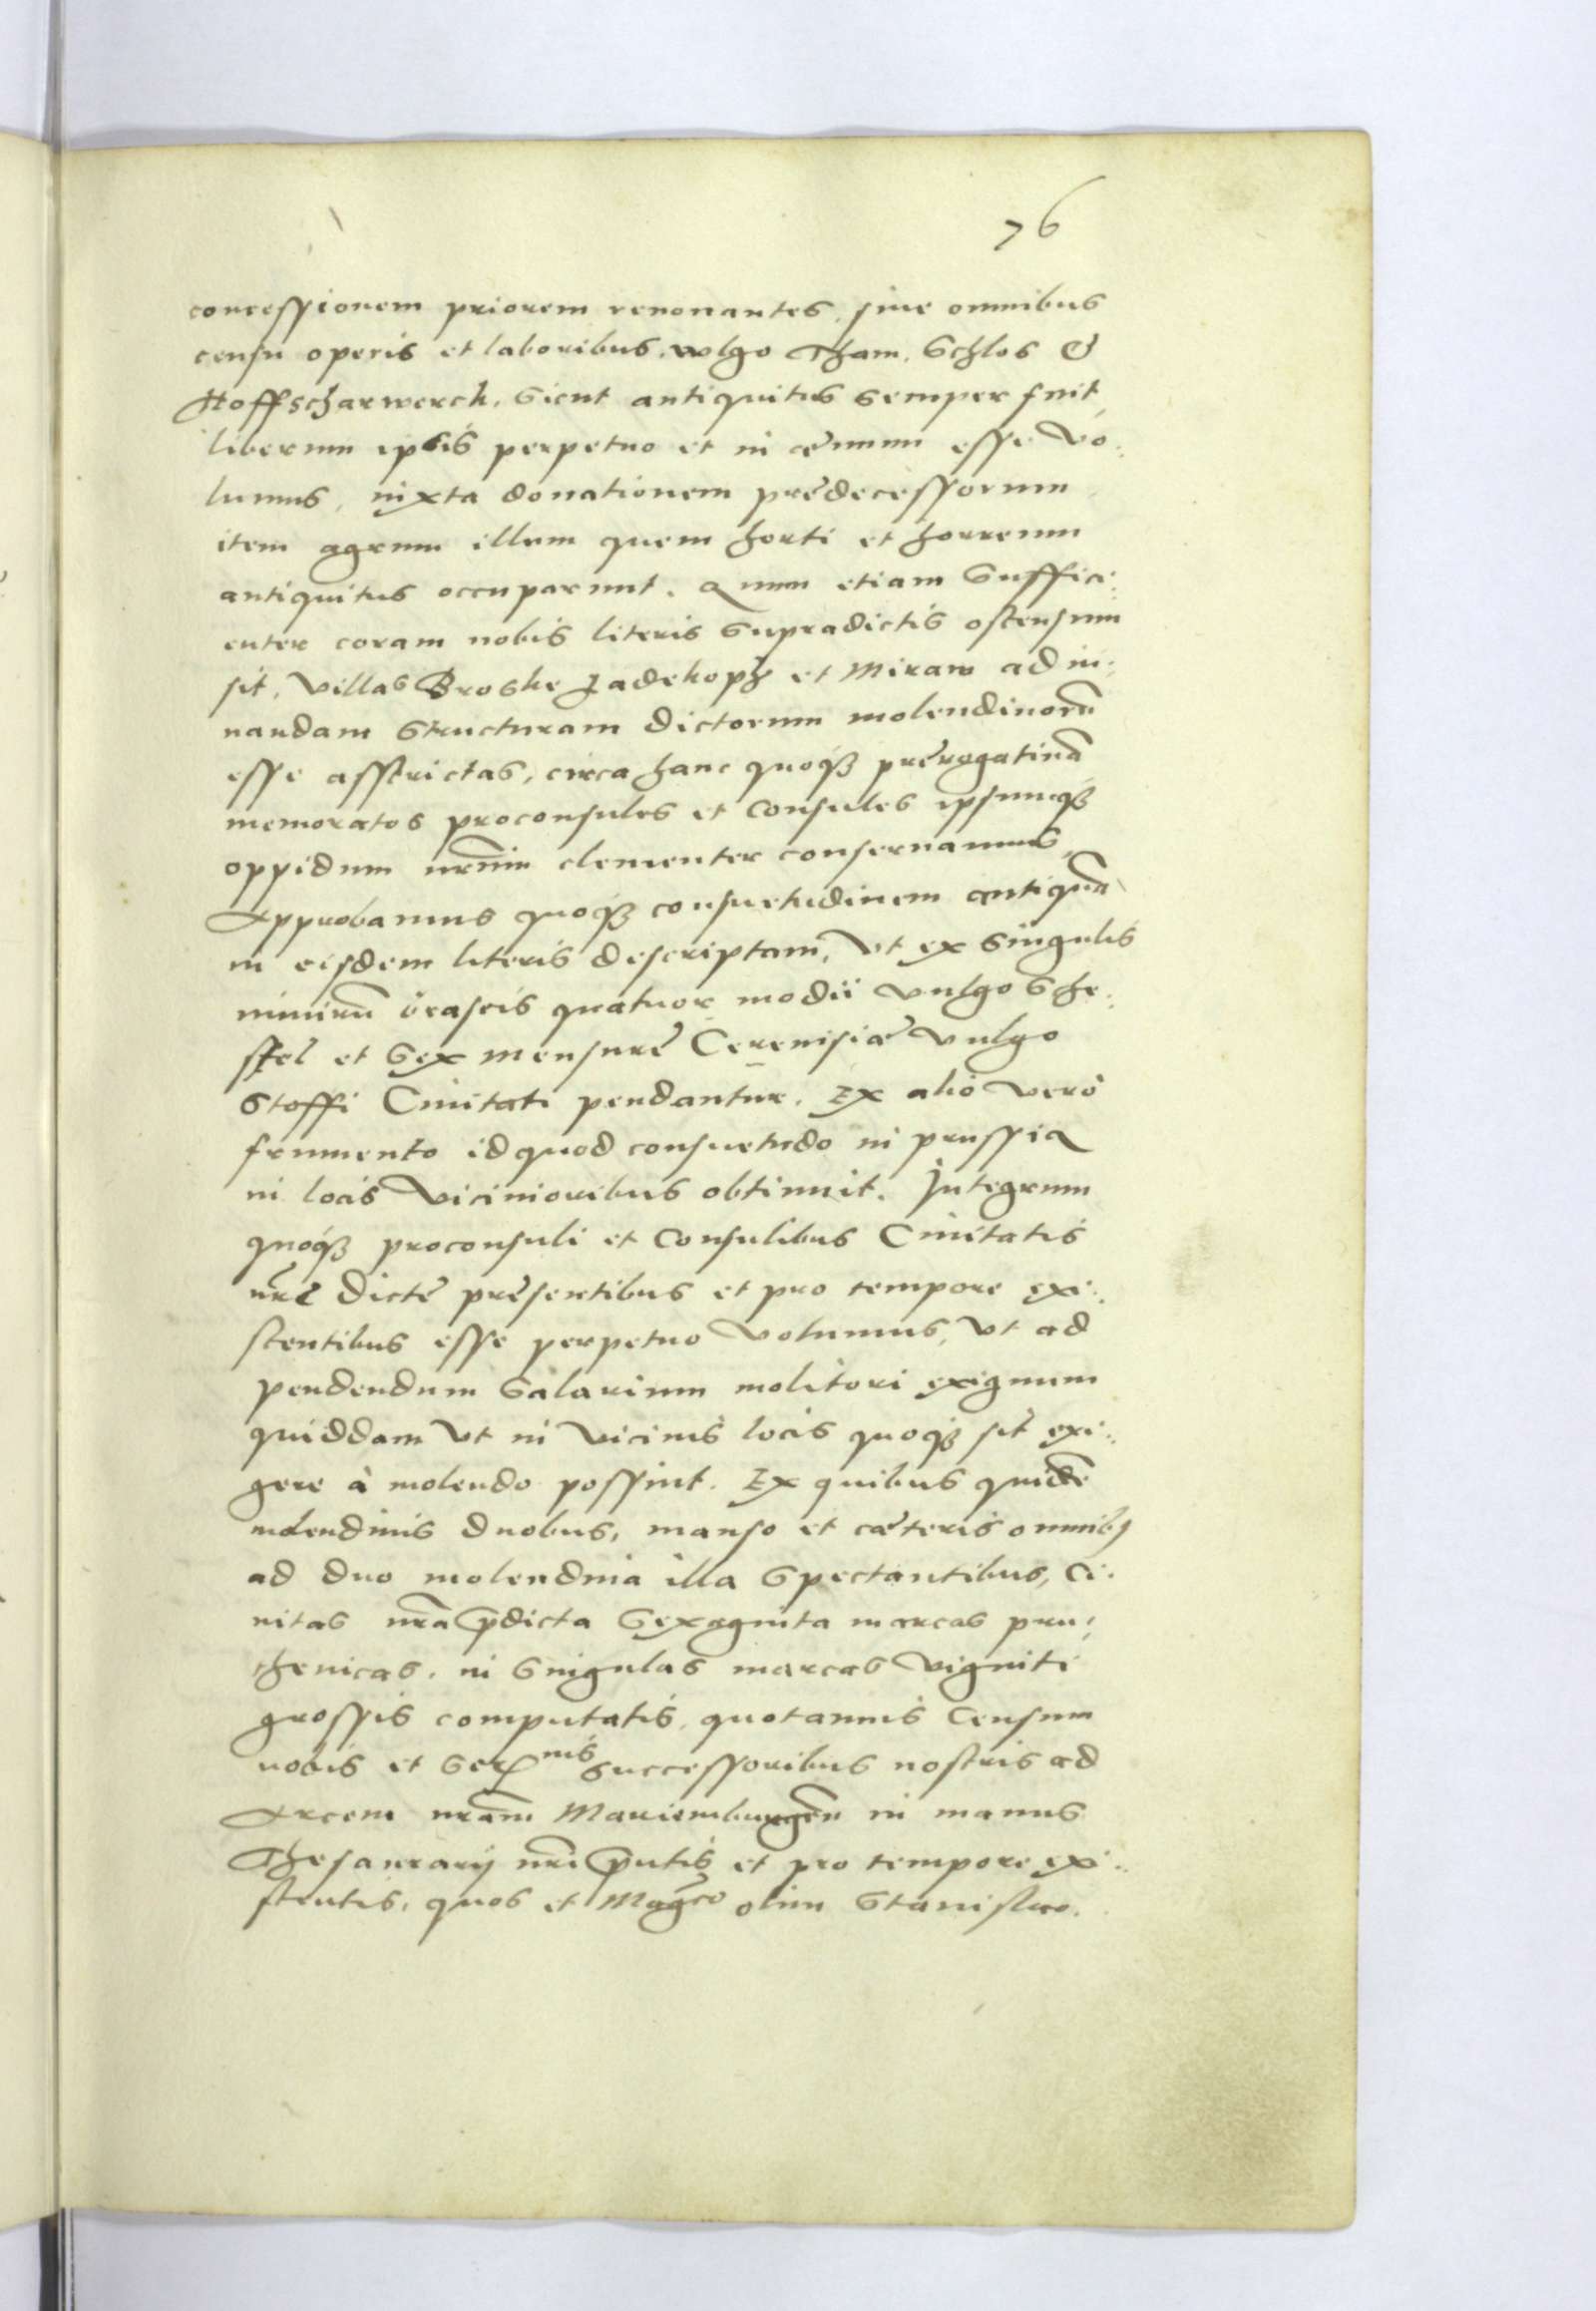 76
concessionem priorem renouantes, siue omnibus
censu operis et laboribus, vulgo Tham, Schlos &
Hoffscharwerck, Sicut antiquitus semper fuit,
liberum ipsis perpetuo et in æuum esse vo:
lumus, iuxta donationem prędecessorum,
item agrum illum quem horti et horreum
antiquitus occuparunt. Quum etiam suffici:
enter coram nobis literis supradictis ostensum
sit, villas Broske Ladekoph et Miraw ad iu:
uandam structuram dictorum molendinorũ
esse asstrictas, circa hanc quoqꝫ prerogatiuã
memoratos proconsules et Consules ipsumqꝫ
oppidum nr̃um clementer conseruamus,
Approbamus quoqꝫ consuetudinem antiquã
in eisdem literis descriptam, vt ex singulis
nimirũ braseis quatuor modii vulgo Sche:
ffel et sex mensurę Cereuisiæ vulgo
Stoffi Ciuitati pendantur. Ex alio vero
frumento id quod consuetudo in prussia
in locis vicinioribus obtinuit. Integrum
quoqꝫ proconsuli et Consulibus Ciuitatis
nr̃ę dictę pręsentibus et pro tempore exi:
stentibus esse perpetuo volumus, vt ad
pendendum salarium molitori exiguum
quiddam vt in vicinis locis quoqꝫ sit exi:
gere à molendo possint. Ex quibus quidẽ
molendinis duobus, manso et cæteris omnibꝫ
ad duo molendina illa spectantibus, Ci:
uitas nr̃a p̃dicta sexaginta marcas pru:
thenicas, in singulas marcas viginti
grossis computatis, quotannis Censum
nobis et Ser^nis successoribus nostris ad
Arcem nr̃am Mariemburgẽn in manus
Thesaurarij nr̃i p̃ntis et pro tempore exi:
stentis, quos et Mag̃co olim Stanislao.